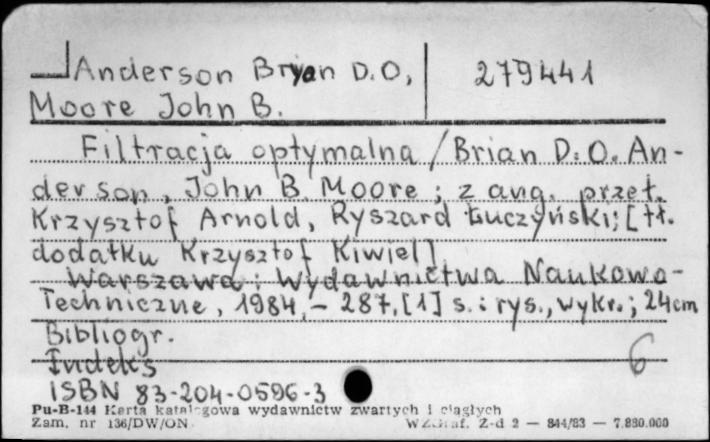 Anderson Bryan D.O, 279441
Moore John B.
Filtracja optymalna / Brian D. O. An-
derson, John B. Moore ; z ang. przeł.
Krzysztof Arnold, Ryszard Łuczyński; [tł.
dodatku Krzysztof Kiwiel]
Warszawa : Wydawnictwa Naukowo-
Techniczne, 1984. – 287, [1] s. : rys., wykr. ; 24cm
Bibliogr.
Indeks 6
ISBN 83-204-0596-3
Pu-B-144 Karta katalogowa wydawnictw zwartych i ciągłych
Zam. nr 136/DW/ON WZGraf. Z-d 2 — 844/83 — 7.880.000